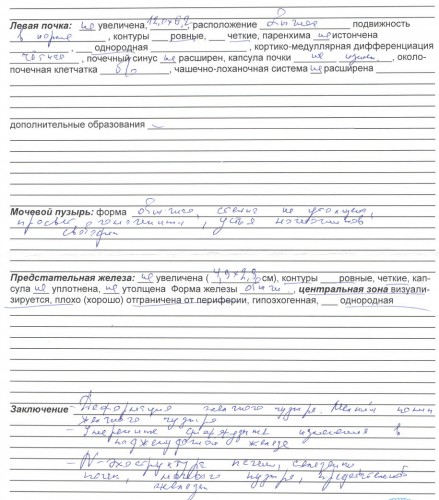 Левая почка: не увеличена, 12,0х6,2, расположение обычное подвижность
в норме , контуры ровные, четкие, паренхима не истончена
, однородная , кортико-медуллярная дифференциация
четкая , почечный синус не расширен, капсула почки не изм. , около-
почечная клетчатка б/о , чашечно-лоханочная система не расширена
дополнительные образования –
Мочевой пузырь: форма обычная, стенка не утолщена,
просвет гомогенный, устья мочеточников
свободны
Предстательная железа: не увеличена ( 4,9х2,8 см), контуры ровные, четкие, кап-
сула не уплотнена, не утолщена Форма железы обычн. , центральная зона визуали-
зируется, плохо (хорошо) отграничена от периферии, гипоэхогенная, однородная
Заключение - Деформация желчного пузыря.
желчного пузыря
- Умеренные диффузные изменения в
поджелудочной железе
- N-эхоструктура печени, селезенки
почек, мочевого пузыря, предстательной
железы